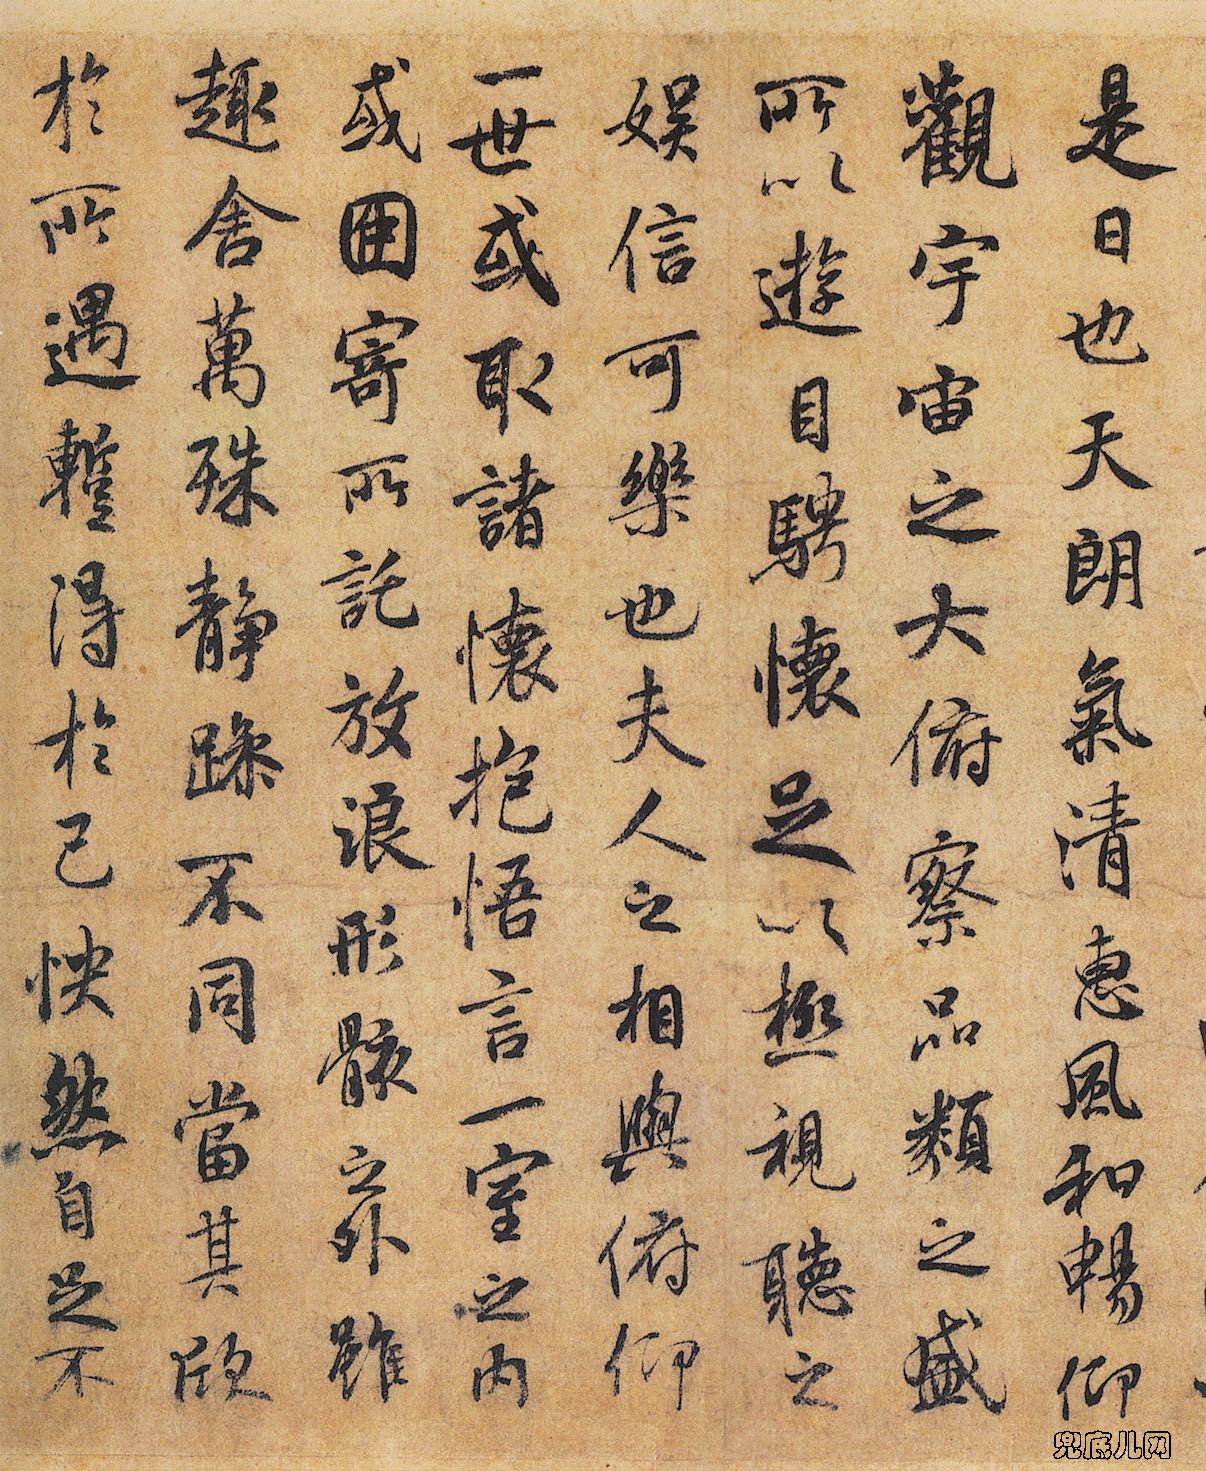 是日也天朗氣清惠風和暢仰
觀宇宙之大俯察品類之盛
所以遊目騁懷足以極視聽之
娛信可樂也夫人之相與俯仰
一世或取諸懷抱悟言一室之內
或因寄所託放浪形骸之外雖
趣舍萬殊靜躁不同當其欣
於所遇蹔得於己怏然自足不
兜底儿网